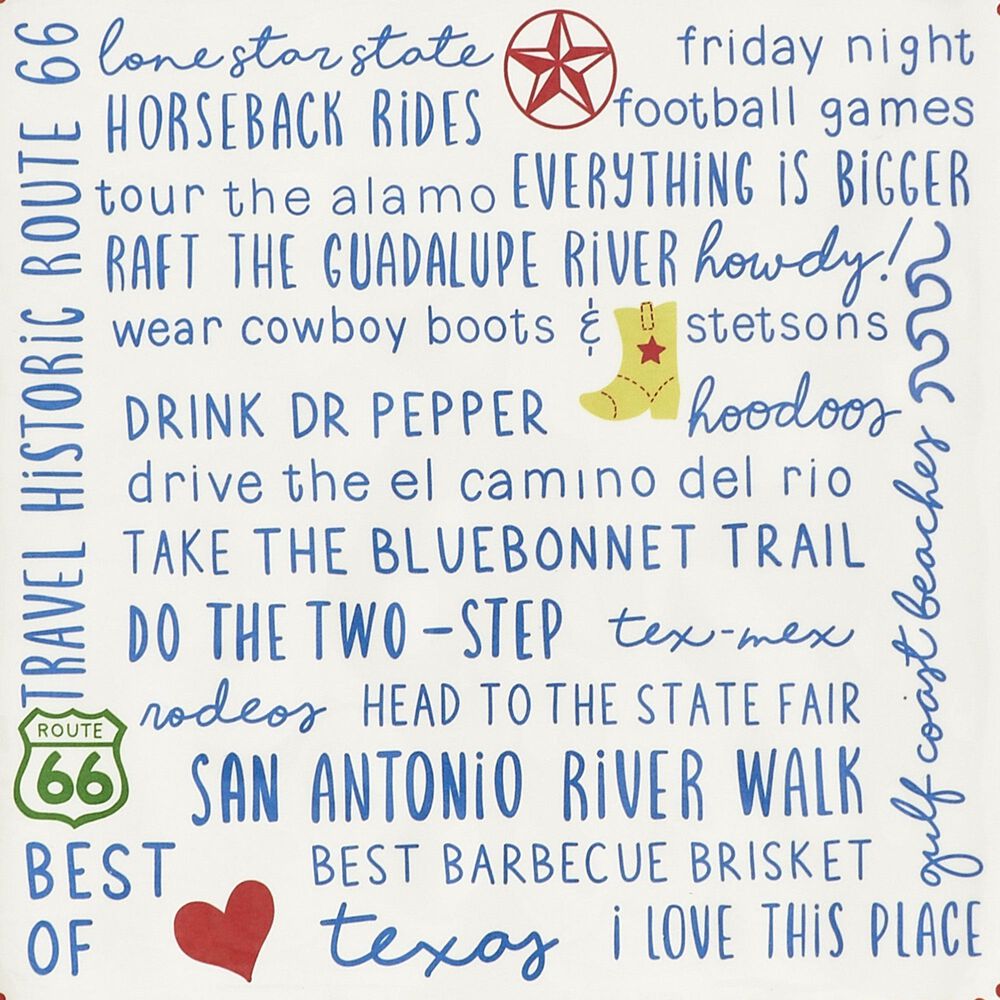 TRAVEL HiSTORiC ROUTE 66
lone star state
friday night
football games
HORSEBACK RiDES
tour the alamo
EVERYTHiNG iS BiGGER
RAFT THE GUADALUPE RiVER
howdy!
wear cowboy boots & stetsons
DRINK DR PEPPER
hoodoos
drive the el camino del rio
TAKE THE BLUEBONNET TRAIL
DO THE TWO-STEP
tex-mex
gulf coast beaches
rodeos
HEAD TO THE STATE FAIR
ROUTE
66
SAN ANTONiO RiVER WALK
BEST
OF
BEST BARBECUE BRISKET
texas
i LOVE THiS PLACE